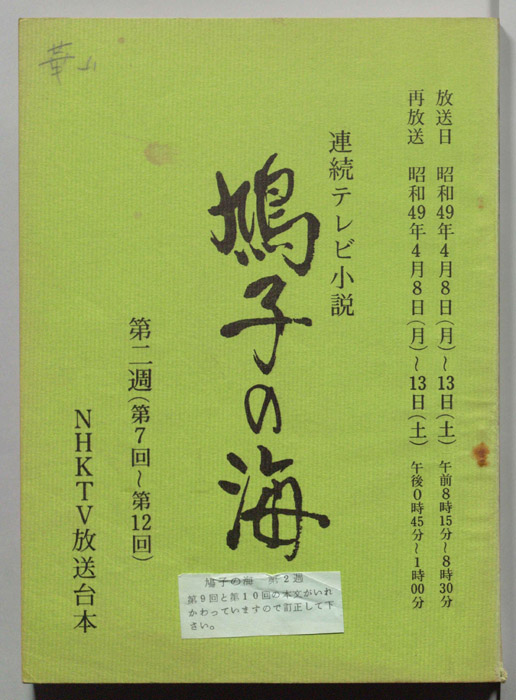 華山
放送日 昭和49年4月8日(月)~13日(土) 午前8時15分~8時30分
再放送 昭和49年4月8日(月)~13日(土) 午後0時45分~1時00分
連続テレビ小説
鳩子の海
第二週(第7回~第12回)
NHKTV放送台本
鳩子の海 第2週
第9回と第10回の本文がいれ
かわっていますので訂正して下
さい。